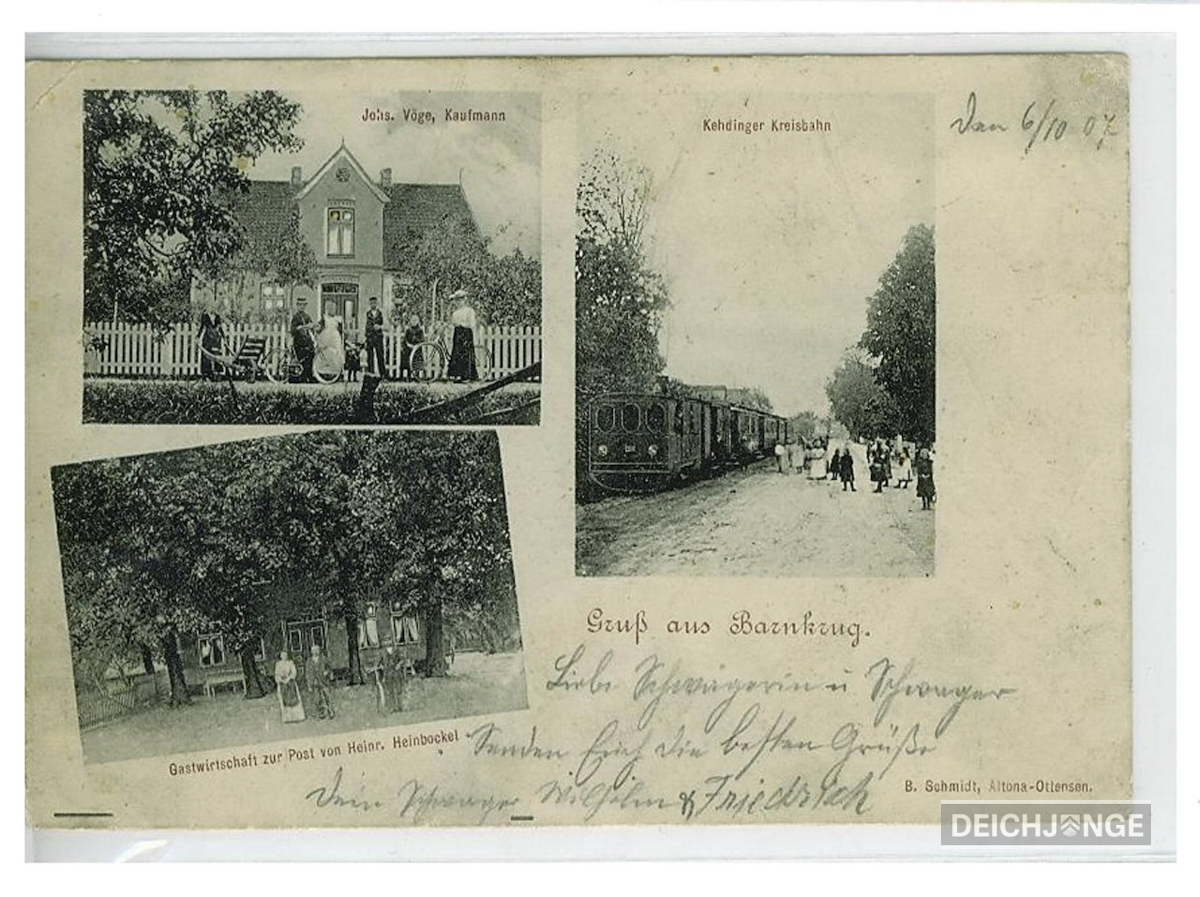 Johs. Vöge, Kaufmann
Kehdinger Kreisbahn
Den 6/10 07
Gruß aus Barnkrug.
Liebe Schwägerin u Schwager
Senden Euch die besten Grüße
Dein Schwager Wilhelm & Friedrich
Gastwirtschaft zur Post von Heinr. Heinbockel
B. Schmidt, Altona-Ottensen.
DEICHJUNGE